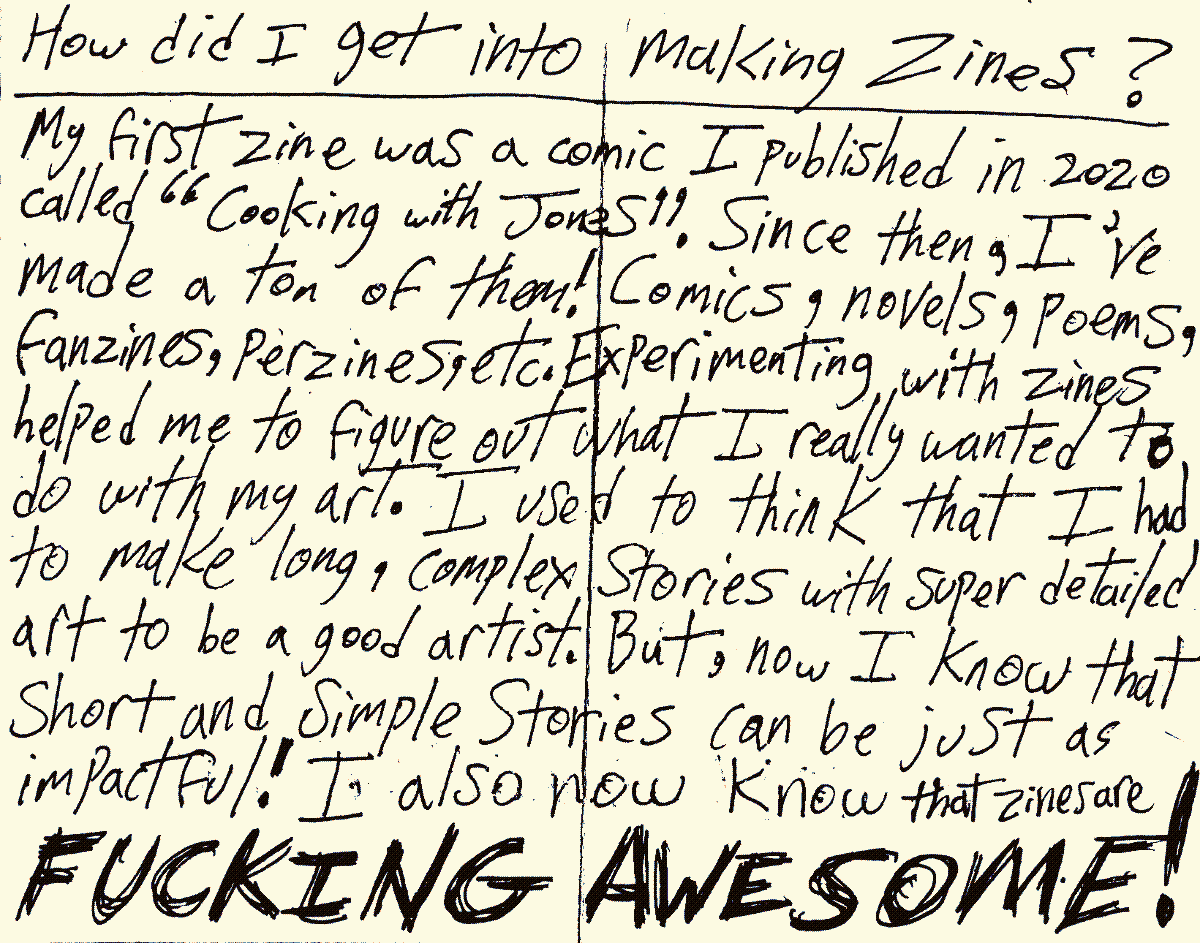 How did I get into making Zines?
My first zine was a comic I published in 2020
called "Cooking with Jones". Since then, I've
made a ton of them! Comics, novels, poems,
fanzines, perzines, etc. Experimenting with zines
helped me to figure out what I really wanted to
do with my art. I used to think that I had
to make long, complex Stories with super detailed
art to be a good artist. But, now I know that
Short and Simple Stories can be just as
impactful! I also now know that zines are
FUCKING AWESOME!